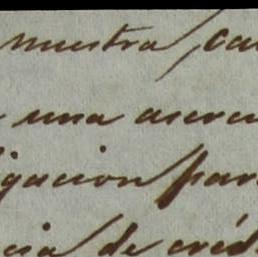 muestra, ca
una acrec
igacion par
cia de créd